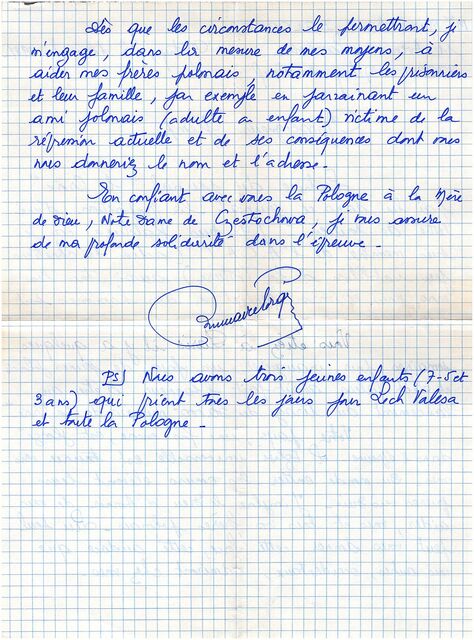 Dès que les circonstances le permettront, je
m'engage, dans la mesure de mes moyens, à
aider mes frères polonais, notamment les prisonniers
et leur famille, par exemple en parrainant un
ami polonais (adulte ou enfant) victime de la
répression actuelle et de ses conséquences dont vous
nous donneriez le nom et l'adresse.
En confiant avec vous la Pologne à la Mère
de Dieu, Notre Dame de Częstochowa, je vous assure
de ma profonde solidarité dans l'épreuve.
PS) Nous avons trois jeunes enfants (7-5 et
3 ans) qui prient tous les jours pour Lech Valesa
et toute la Pologne.